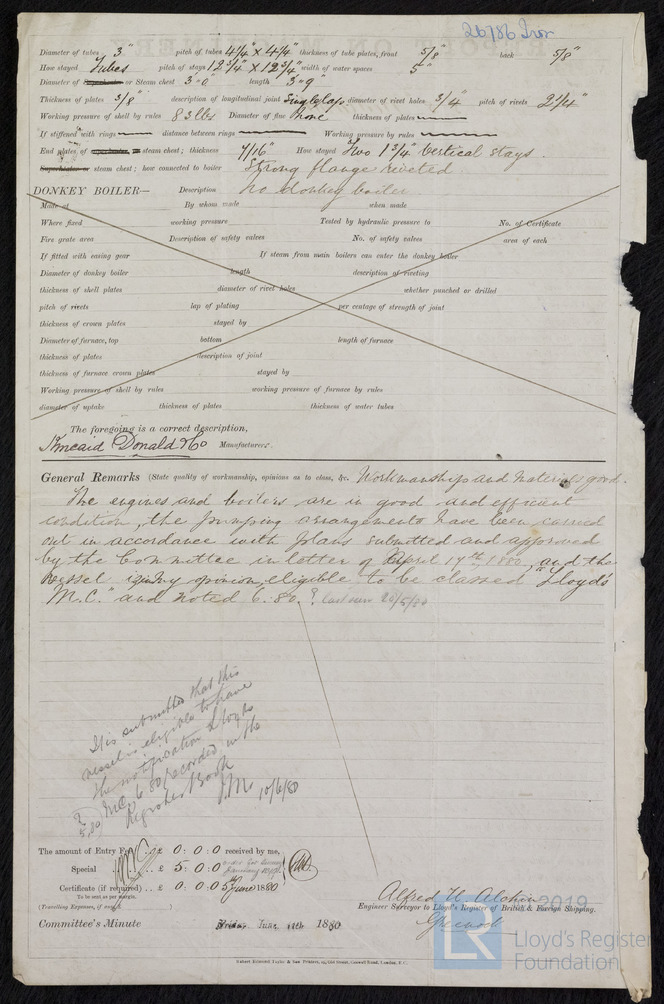 26786 Iron
Diameter of tubes 3" pitch of tubes 4 1/4" x 4 1/4" thickness of tube plates, front 5/8" back 5/8"
How stayed Tubes pitch of stays 12 3/4" x 12 3/4" width of water spaces 5"
Diameter of Superheater or Steam chest 3' 0" length 3' 9"
Thickness of plates 3/8" description of longitudinal joint Single lap diameter of rivet holes 3/4 pitch of rivets 2 1/4"
Working pressure of shell by rules 83 lbs Diameter of flue None thickness of plates
If stiffened with rings distance between rings Working pressure by rules
End plates of steam chest; thickness 7/16" How stayed Two 1 3/4" vertical stays.
Superheater or steam chest; how connected to boiler Strong flange riveted
DONKEY BOILER— Description No donkey boiler
Made at By whom made when made
Where fixed working pressure Tested by hydraulic pressure to No. of Certificate
Fire grate area Description of safety valves No. of safety valves area of each
If fitted with easing gear If steam from main boilers can enter the donkey boiler
Diameter of donkey boiler length description of riveting
thickness of shell plates diameter of rivet holes whether punched or drilled
pitch of rivets lap of plating per centage of strength of joint
thickness of crown plates stayed by
Diameter of furnace, top bottom length of furnace
thickness of plates description of joint
thickness of furnace crown plates stayed by
Working pressure of shell by rules working pressure of furnace by rules
diameter of uptake thickness of plates thickness of water tubes
The foregoing is a correct description,
Kincaid Donald & Co Manufacturer.
General Remarks (State quality of workmanship, opinions as to class, &c. Workmanship and materials good.
The engines and boilers are in good and efficient
condition, the pumping arrangements have been carried
out in accordance with plans submitted and approved
by the Committee in letter of April 17th 1880, and the
vessel is in my opinion, eligible to be classed "Lloyd's
M.C." and noted 6.80. ? last seen 28/5/80
It is submitted that this
vessel is eligible to have
the notification Lloyds
M.C. 6.80 recorded in the
? 5.80
Register Book
J.M 10/6/80
The amount of Entry Fee .. £ 0 : 0 : 0 received by me,
Special .. £ 5 : 0 : 0
Certificate (if required) .. £ 0 : 0 : 0 5 June 1880
To be sent as per margin.
(Travelling Expenses, if any, £ )
Alfred H. Alchin
Engineer Surveyor to Lloyd's Register of British & Foreign Shipping.
Greenock
Committee's Minute Friday June 11th 1880
Robert Edmund Taylor & Son Printers, 19, Old Street, Goswell Road, London, E.C.
2019
LR Lloyd's Register
Foundation